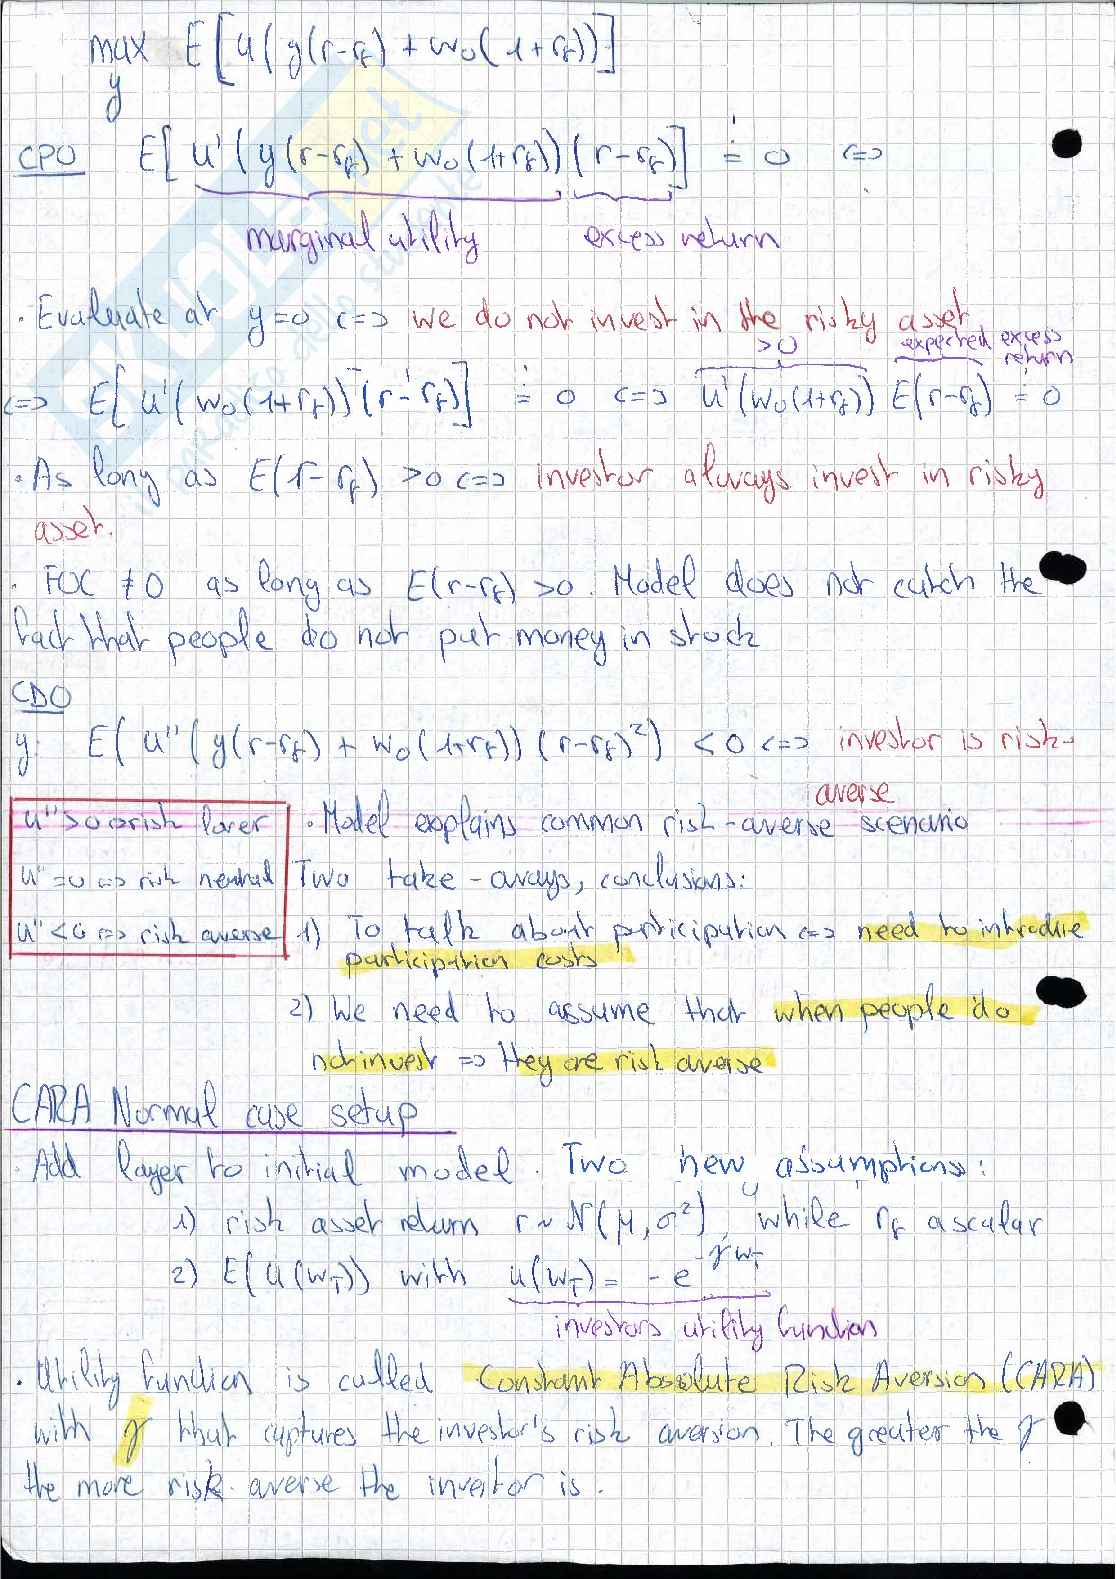 max E[u(y(r-rf) + w0(1+rf))]
y
CPO E[u'(y(r-rf) + w0(1+rf))(r-rf)] = 0 <=>
marginal utility excess return
. Evaluate at y=0 <=> we do not invest in the risky asset
>0 expected excess return
<=> E[u'(w0(1+rf))(r-rf)] = 0 <=> u'(w0(1+rf)) E(r-rf) = 0
. As long as E(r-rf) >0 <=> investor always invest in risky
asset.
. FOC ≠ 0 as long as E(r-rf) >0. Model does not catch the
fact that people do not put money in stock
CDO
y: E(u''(y(r-rf) + w0(1+rf))(r-rf)²) <0 <=> investor is risk-
averse
u''>0 <=> risk lover
u''=0 <=> risk neutral
u''<0 <=> risk averse
. Model explains common risk-averse scenario
Two take-aways, conclusions:
1) To talk about participation <=> need to introduce
participation costs
2) We need to assume that when people do
not invest => they are risk averse
CARA Normal case setup
. Add layer to initial model. Two new assumptions:
1) risk asset return r ~ N(μ, σ²), while rf a scalar
2) E(u(wT)) with u(wT) = -e^(-γwT)
investors utility function
. Utility function is called Constant Absolute Risk Aversion (CARA)
with γ that captures the investor's risk aversion. The greater the γ
the more risk averse the investor is.